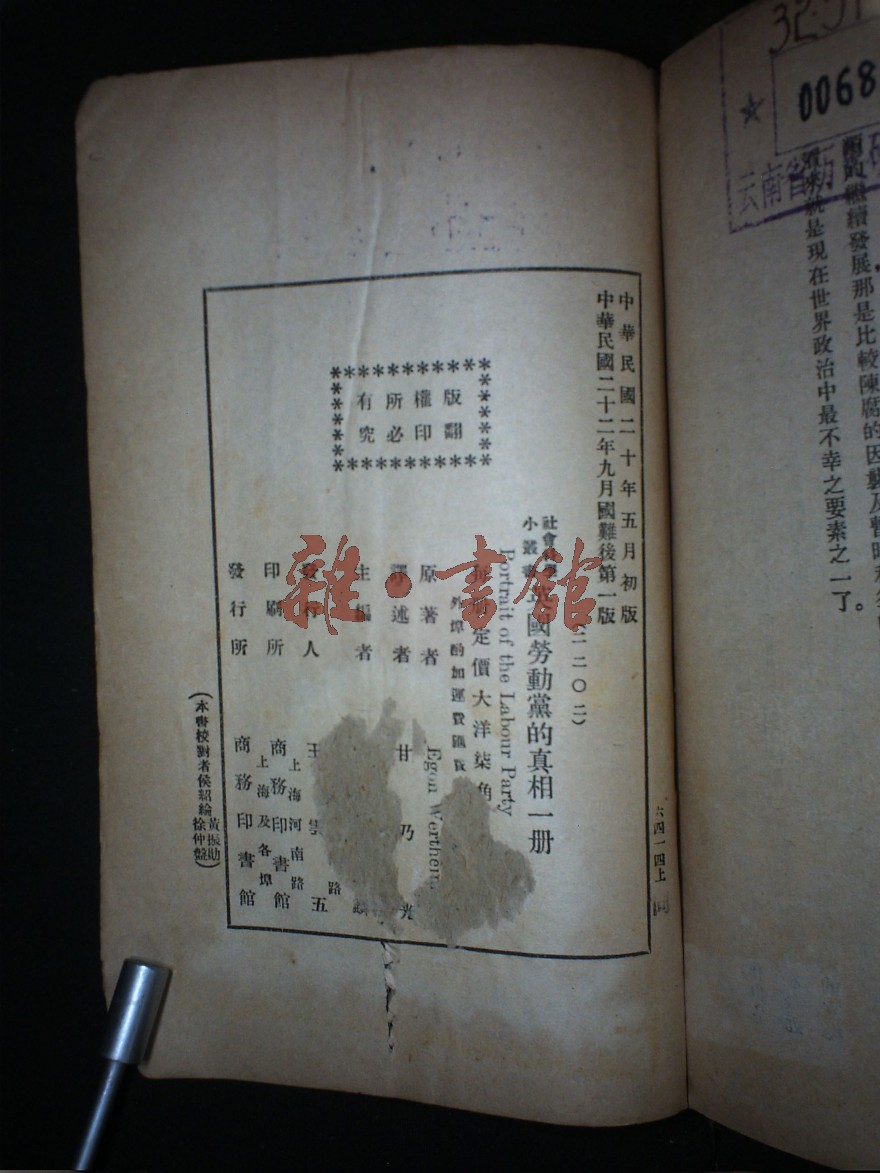 32.51
0068
云南省
的繼續發展那是比較陳腐的因襲及暫時
看來就是現在世界政治中最不幸之要素之一了。
中華民國二十年五月初版
中華民國二十二年九月國難後第一版
(二二〇二)
社會科學
小叢書
英國勞動黨的真相一册
Portrait of the Labour Party
每册定價大洋柒角
外埠酌加運費匯費
原著者 Egon Werthei
譯述者 甘乃光
主編者
發行人 王雲五
上海河南路
印刷所 商務印書館
上海及各埠
發行所 商務印書館
(本書校對者侯紹綸 黃振勛 徐仲盤)
版權所有
翻印必究
六四一四上
雜·書館